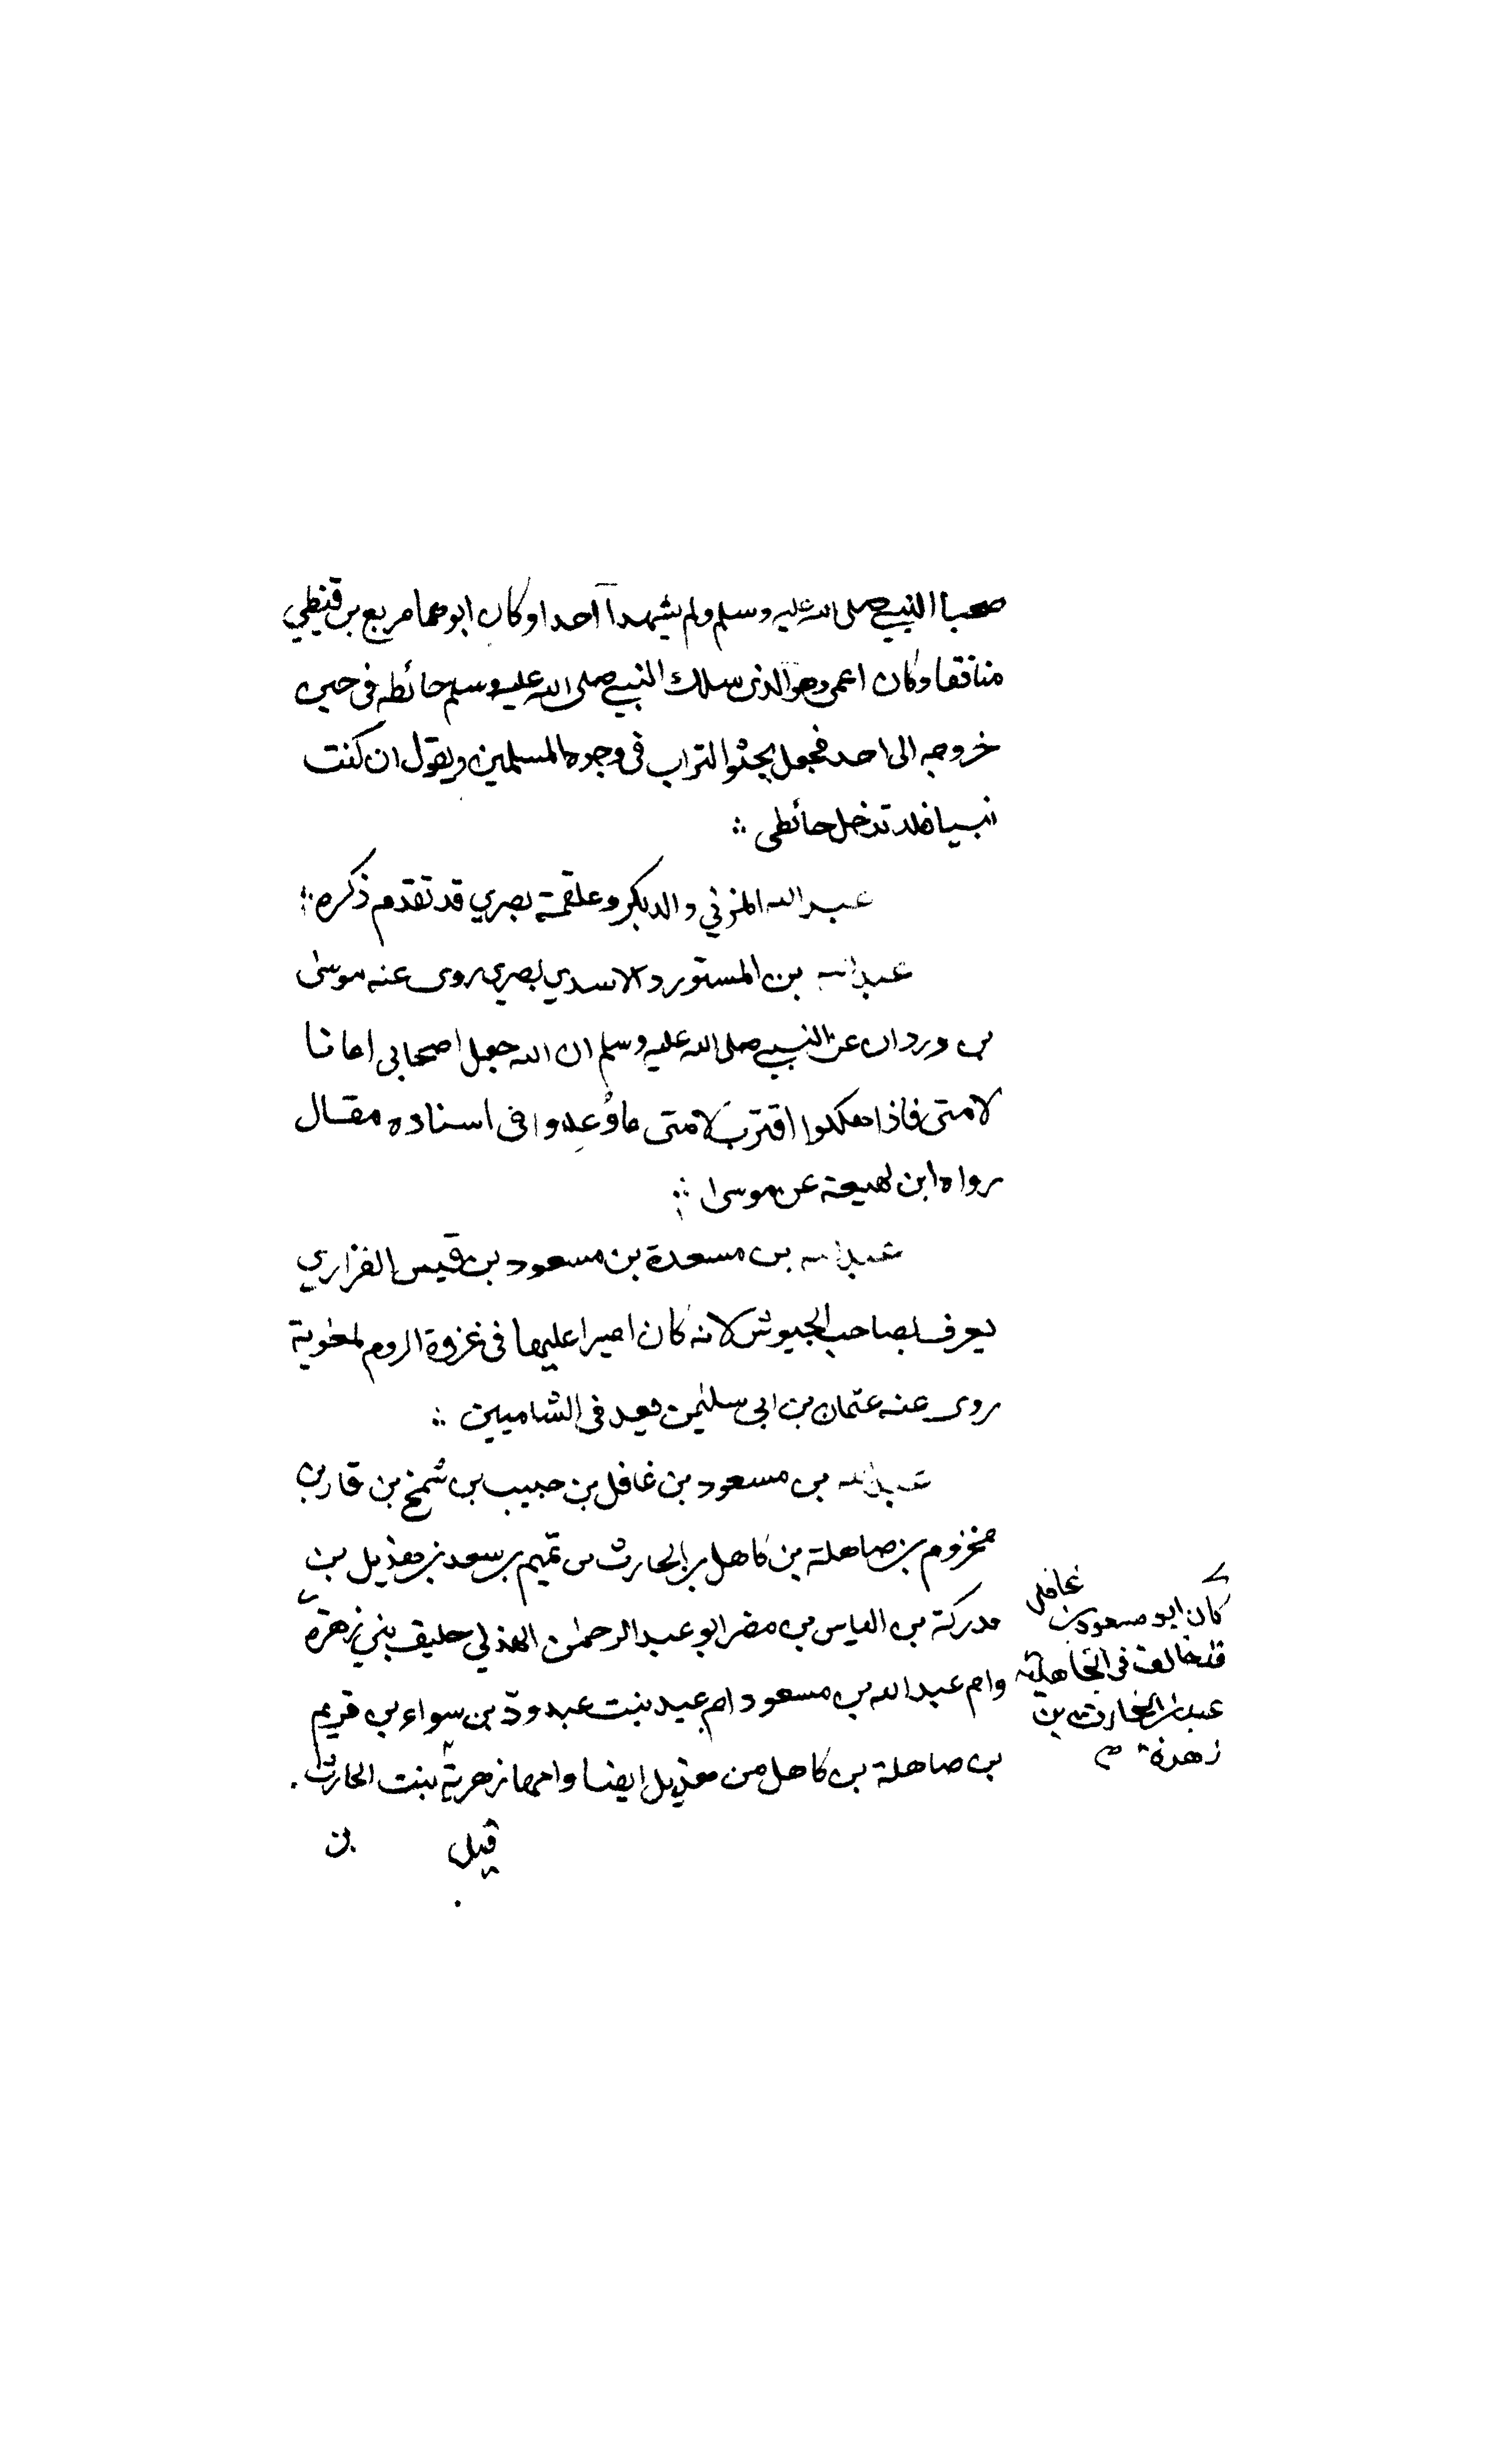 صحبا النبي صلى الله عليه وسلم ولم يشهدا أحدا وكان ابوهما مربع بن قيظي
منافقا وكان اعمى وهو الذى سلك النبي صلى الله عليه وسلم حائطه فى حين
خروجه الى احد فجعل يحثوا التراب فى وجوه المسلمين ويقول ان كنت
نبيا فلا تدخل حائطى
عبد الله المزني والد بكر وعلقمة بصري قد تقدم ذكره
عبد الله بن المستورد الاسدي بصري روى عنه موسى
بن وردان عن النبي صلى الله عليه وسلم ان الله جعل اصحابى امانا
لامتى فاذا هلكوا اقترب لامتى ما وُعدوا فى اسناده مقال
رواه ابن لهيعة عن موسى
عبد الله بن مسعدة بن مسعود بن قيس الفزاري
يعرف بصاحب الجيوش لانه كان اميرا عليها فى غزوة الروم لمعوية
روى عنه عثمان بن ابى سليمن يعد فى الشاميين
عبد الله بن مسعود بن غافل بن حبيب بن شمخ بن قار بن
مخزوم بن صاهلة بن كاهل بن الحارث بن تميم بن سعد بن هذيل بن
مدركة بن الياس بن مضر ابو عبد الرحمن الهذلي حليف بني زهرة
وام عبد الله بن مسعود ام عبد بنت عبد ودّ بن سواء بن قريم
بن صاهلة بن كاهل من هذيل ايضا وامها زهرية بنت الحارث
قيل
بن
كان ابو مسعود بن غافل
قد خالف فى الجاهلية
عبد بن الحارث بن
زهرة